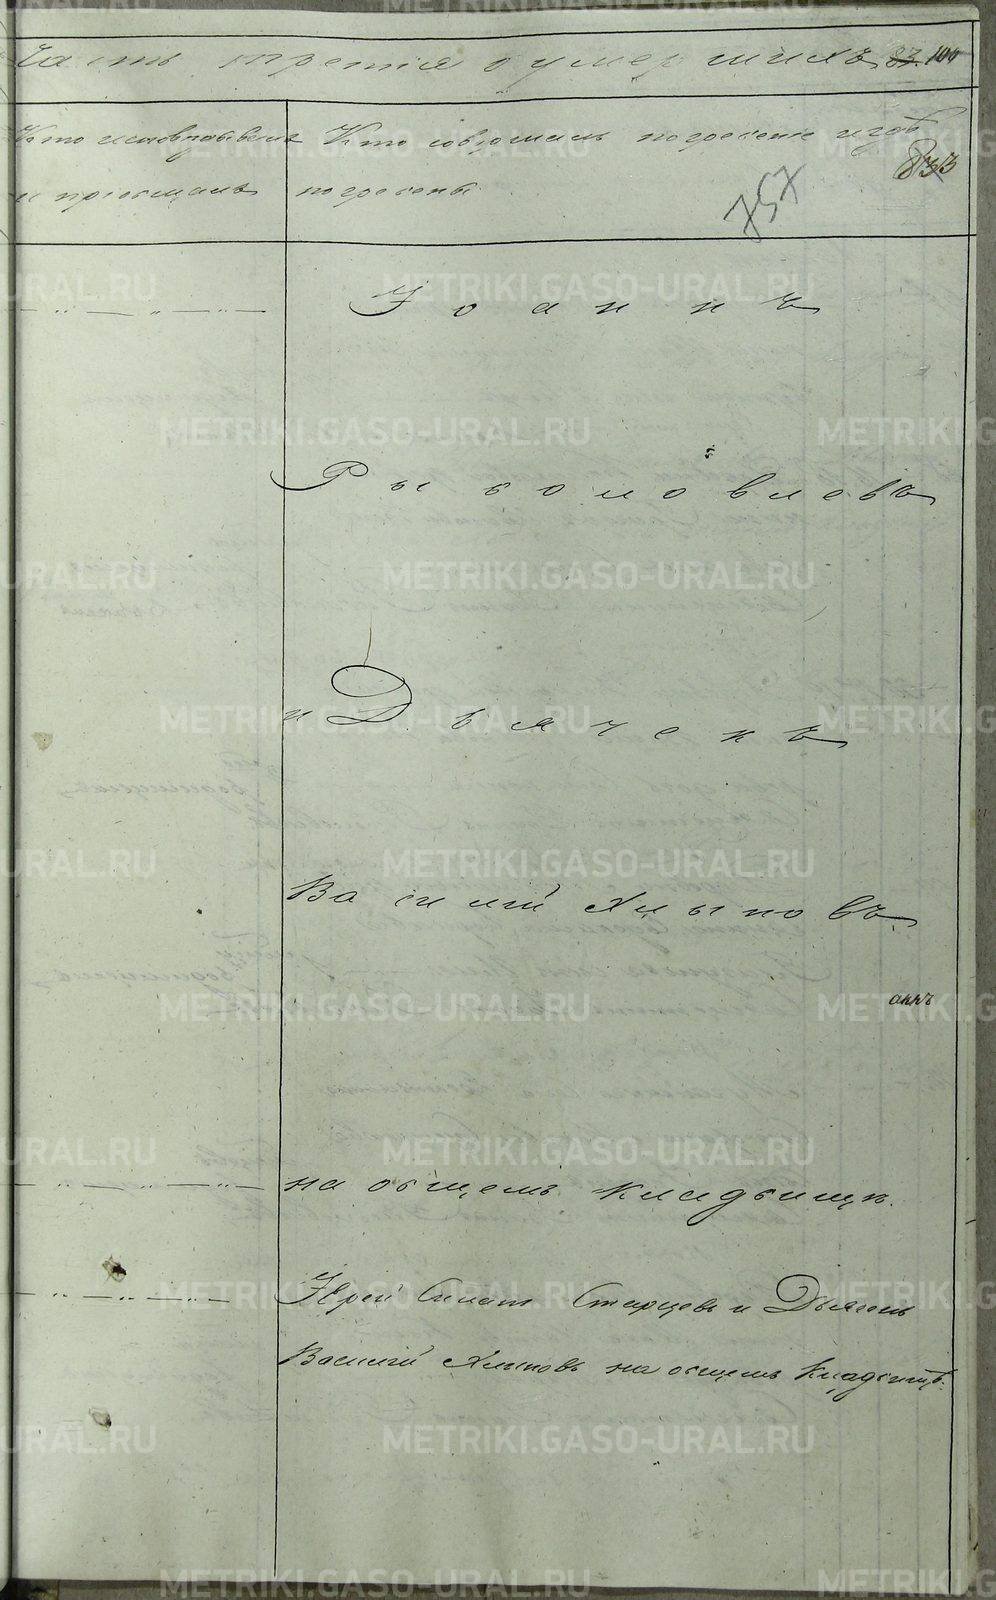 Часть третія о умершихъ 83. 100
Кто исповѣдывалъ Кто совершалъ погребеніе и гдѣ
833
и пріобщалъ погребены
757
Іоаннъ
Рыболовлевъ
и Дьячекъ
Василій Хлыновъ.
на общемъ кладбищѣ.
Іерей Старцевъ и Дьячекъ
Василій Хлыновъ на общемъ кладбищѣ.
METRIKI.GASO-URAL.RU